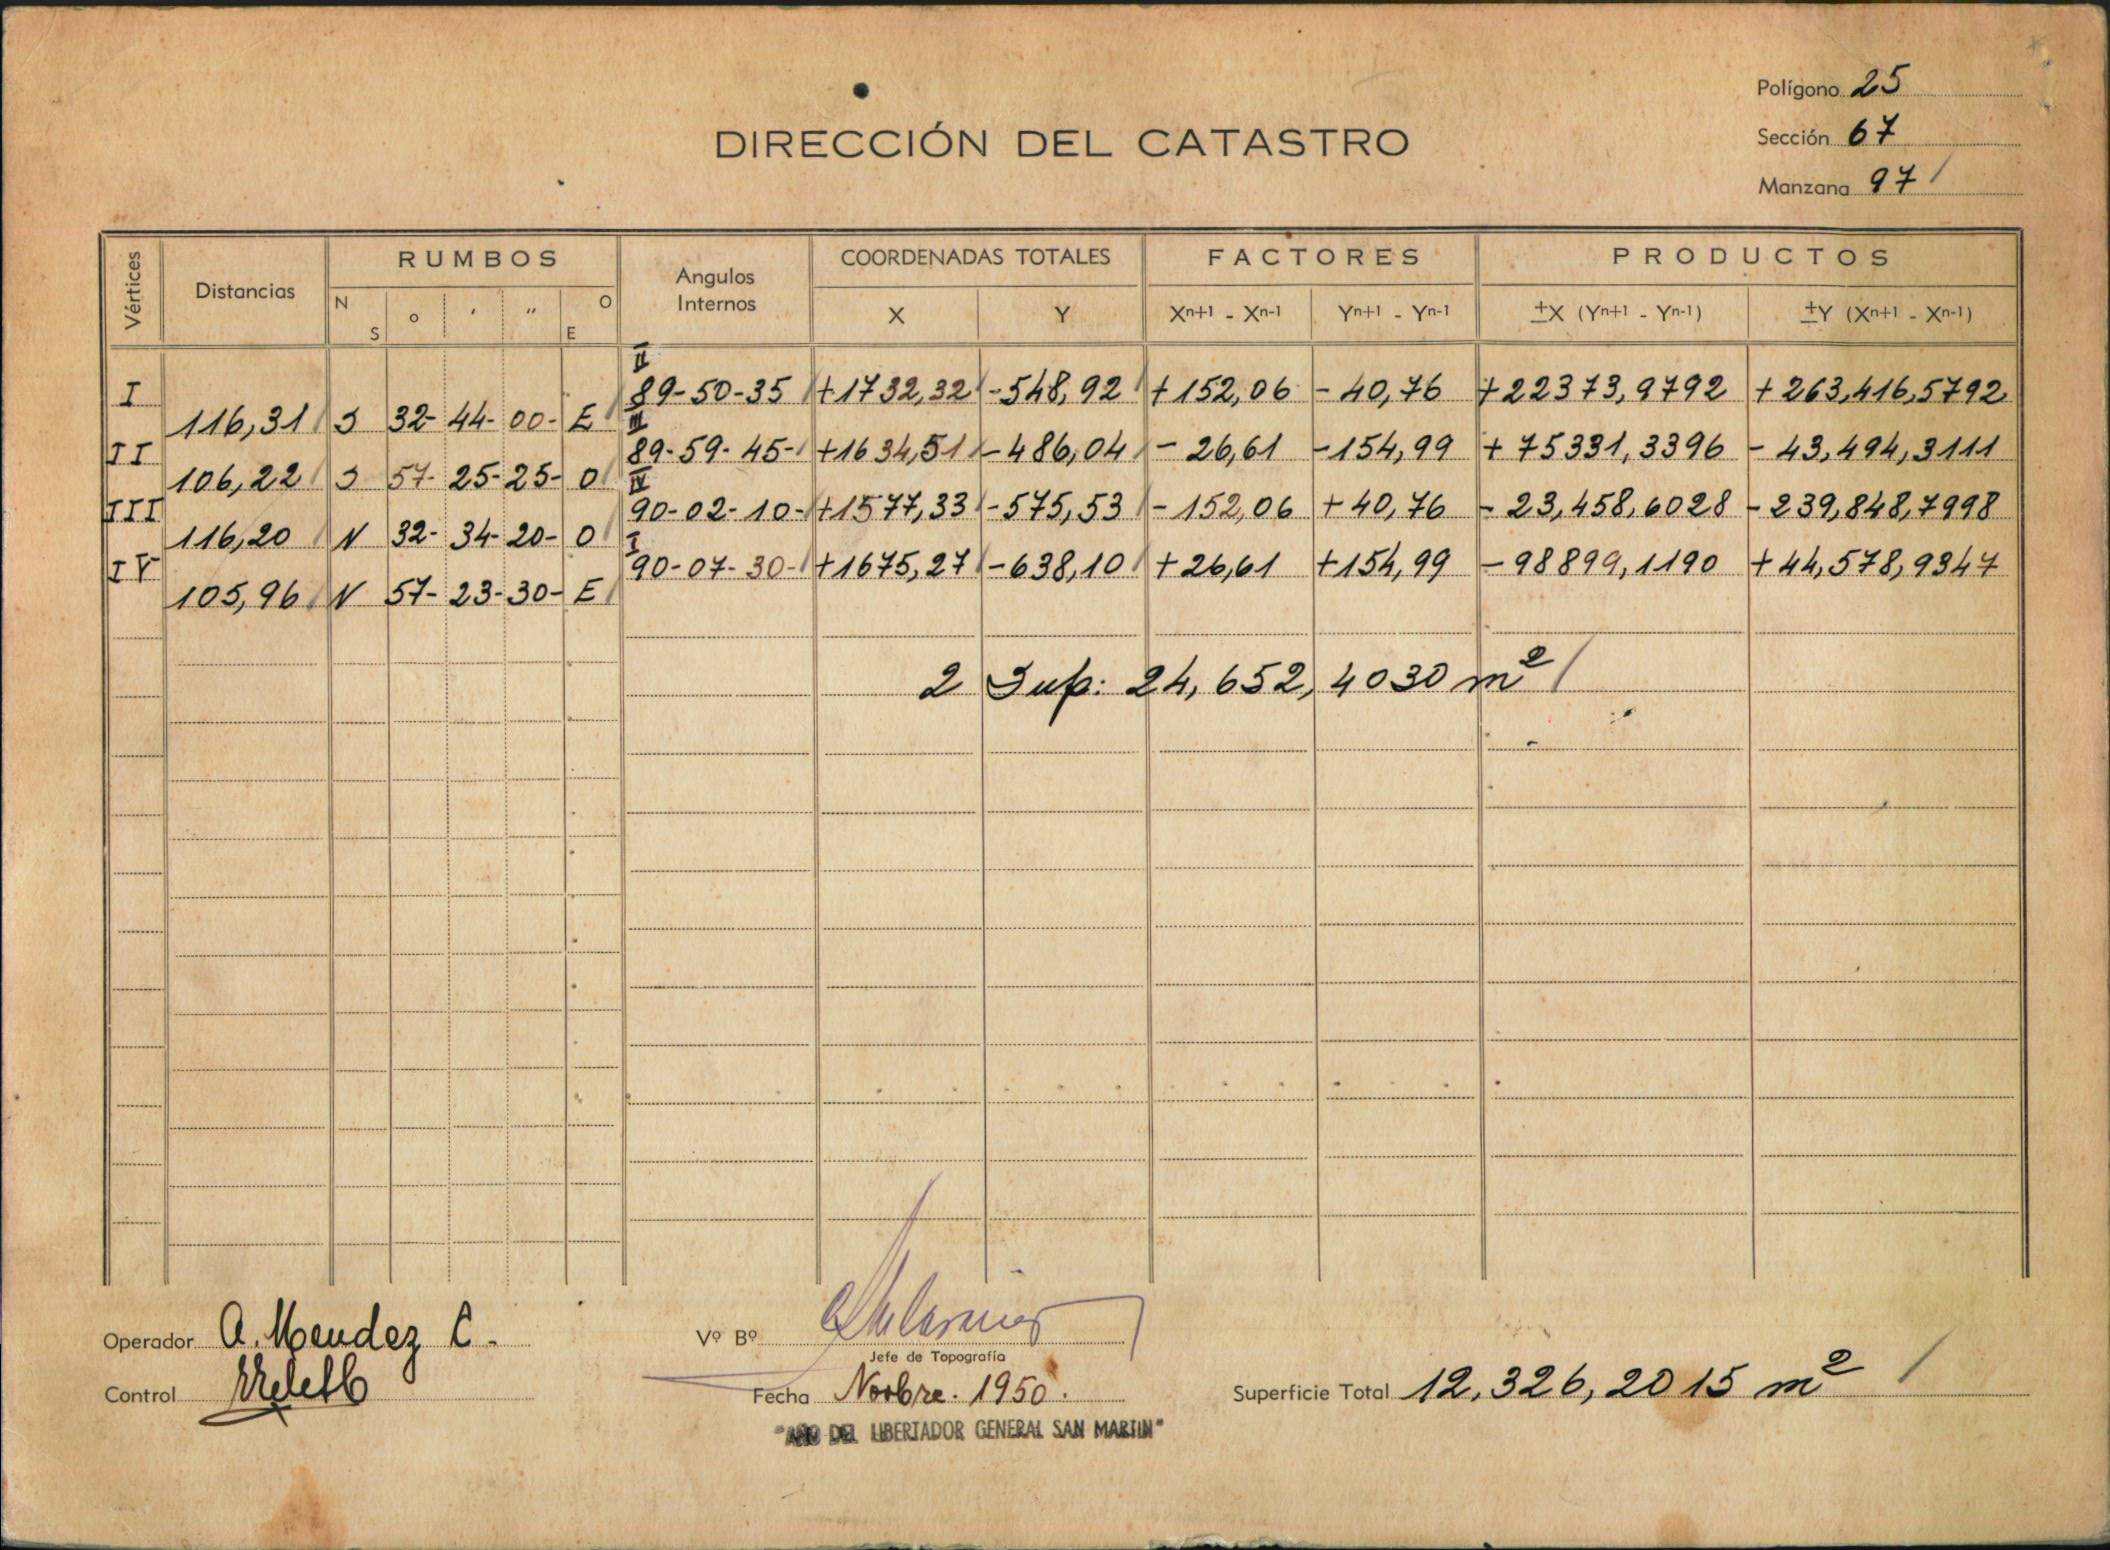 Polígono 25
DIRECCIÓN DEL CATASTRO
Sección 67
Manzana 97 /
Vértices Distancias RUMBOS Angulos Internos COORDENADAS TOTALES FACTORES PRODUCTOS
N S o ' '' E O X Y Xn+1 - Xn-1 Yn+1 - Yn-1 ±X (Yn+1 - Yn-1) ±Y (Xn+1 - Xn-1)
II
I 89-50-35 +1732,32 -548,92 +152,06 -40,76 +22373,9792 +263,416,5792
116,31 S 32- 44- 00- E III
II 89-59-45- +1634,51 -486,04 -26,61 -154,99 +75331,3396 -43,494,3111
106,22 S 57- 25- 25- O IV
III 90-02-10- +1577,33 -575,53 -152,06 +40,76 -23,458,6028 -239,848,7998
116,20 N 32- 34- 20- O I
IV 90-07-30- +1675,27 -638,10 +26,61 +154,99 -98899,1190 +44,578,9347
105,96 N 57- 23- 30- E
2 Sup: 24,652,4030 m² /
Operador A. Mendez C.
Vº Bº
Jefe de Topografía
Control
Fecha Novbre. 1950.
Superficie Total 12,326,2015 m² /
"AÑO DEL LIBERTADOR GENERAL SAN MARTIN"